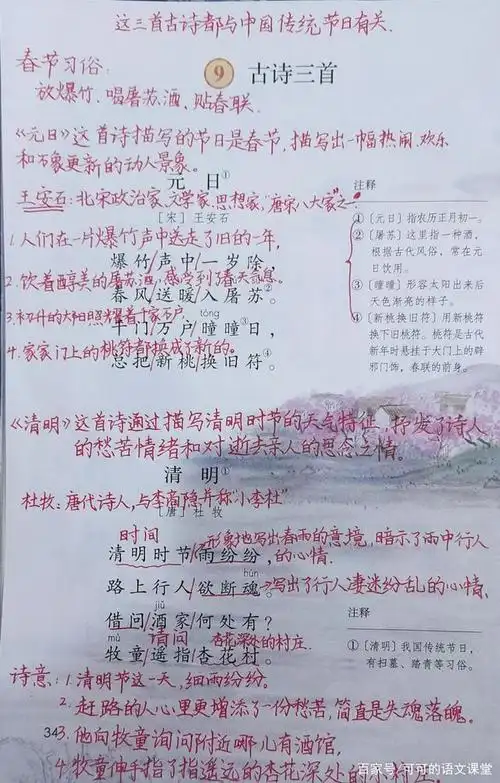 这三首古诗都与中国传统节日有关.
春节习俗:
⑨ 古诗三首
放爆竹、喝屠苏酒、贴春联.
《元日》这首诗描写的节日是春节,描写出一幅热闹、欢乐
和万象更新的动人景象。
元 日①
王安石:北宋政治家、文学家、思想家,“唐宋八大家”之一.
[宋] 王安石
1.人们在一片爆竹声中送走了旧的一年,
爆竹/声中/一岁除,
2.饮着醇美的屠苏酒,感受到了春天气息。
春风/送暖/入屠苏②。
3.初升的太阳照耀着千家万户,
tóng
千门/万户/曈曈③日,
4.家家门上的桃符都换成了新的。
总把/新桃/换旧符④。
注释
①〔元日〕指农历正月初一。
②〔屠苏〕这里指一种酒,
根据古代风俗,常在元
日饮用。
③〔曈曈〕形容太阳出来后
天色渐亮的样子。
④〔新桃换旧符〕用新桃符
换下旧桃符。桃符是古代
新年时悬挂于大门上的辟
邪门饰,春联的前身。
《清明》这首诗通过描写清明时节的天气特征,抒发了诗人
的愁苦情绪和对逝去亲人的思念之情。
清 明①
杜牧:唐代诗人,与李商隐并称“小李杜”
[唐] 杜 牧
时间
形象地写出春雨的意境,暗示了雨中行人
清明时节/雨纷纷,
的心情.
hún
路上行人/欲断魂。
写出了行人凄迷纷乱的心情、
jiǔ
借问/酒家/何处有?
请问
杏花深处的村庄.
mù
牧童/遥指/杏花村。
注释
①〔清明〕我国传统节日,
有扫墓、踏青等习俗。
诗意:1.清明节这一天,细雨纷纷。
2.赶路的人心里更增添了一份愁苦,简直是失魂落魄。
34
3.他向牧童询问附近哪儿有酒馆,
4.牧童伸手指了指遥远的杏花深处的小村庄。
百家号/可可的语文课堂